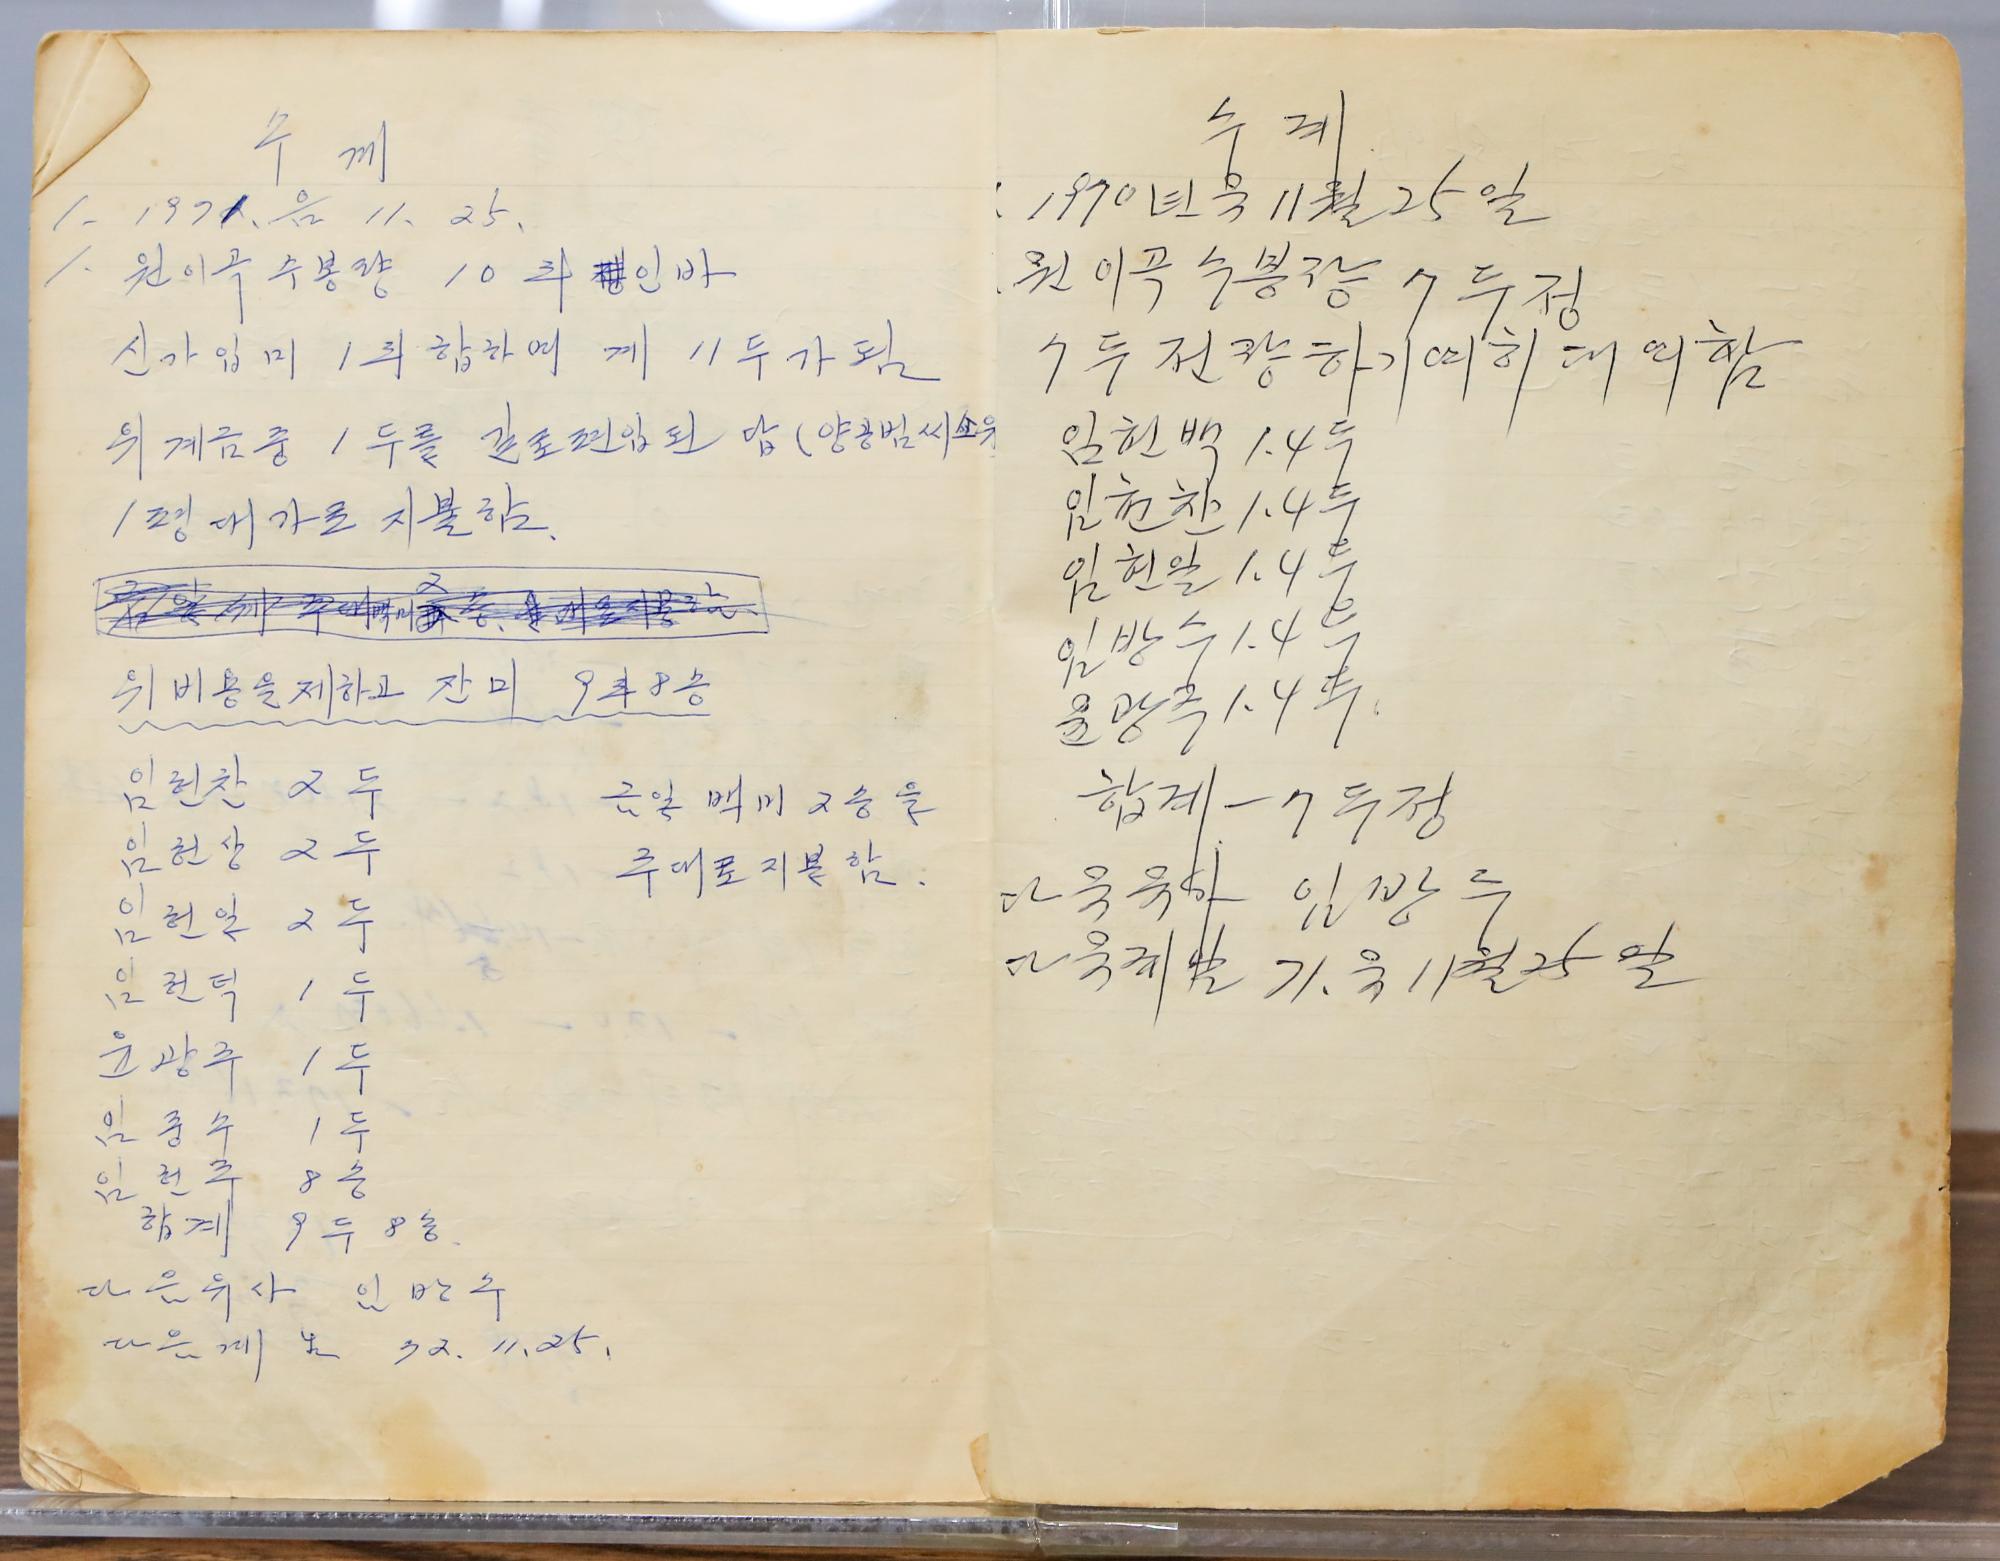 수계
1. 1971. 음 11. 25.
1. 원이곡 수봉량 10두 인바
신가입미 1두 합하여 계 11두가 됨
위 계금중 1두를 길로편입된 답 (양공범씨소유
1평 대가로 지불함.
위 비용을 제하고 잔미 9두8승
임헌찬 2두
임헌상 2두
임헌일 2두
임헌덕 1두
윤광주 1두
임종수 1두
임헌주 8승
합계 9두8승.
다음유사 임방수
다음계일 72. 11. 25.
금일 백미 2승을
주대로 지불함.
수계
1970년 음 11월 25일
원이곡 수봉량 7두정
7두 전량 하기여히 대여함
임헌백 1.4두
임헌찬 1.4두
임헌일 1.4두
임방수 1.4두
윤광주 1.4두.
합계 - 7두정
다음유사 임방수
다음계일 71. 음 11월 25일